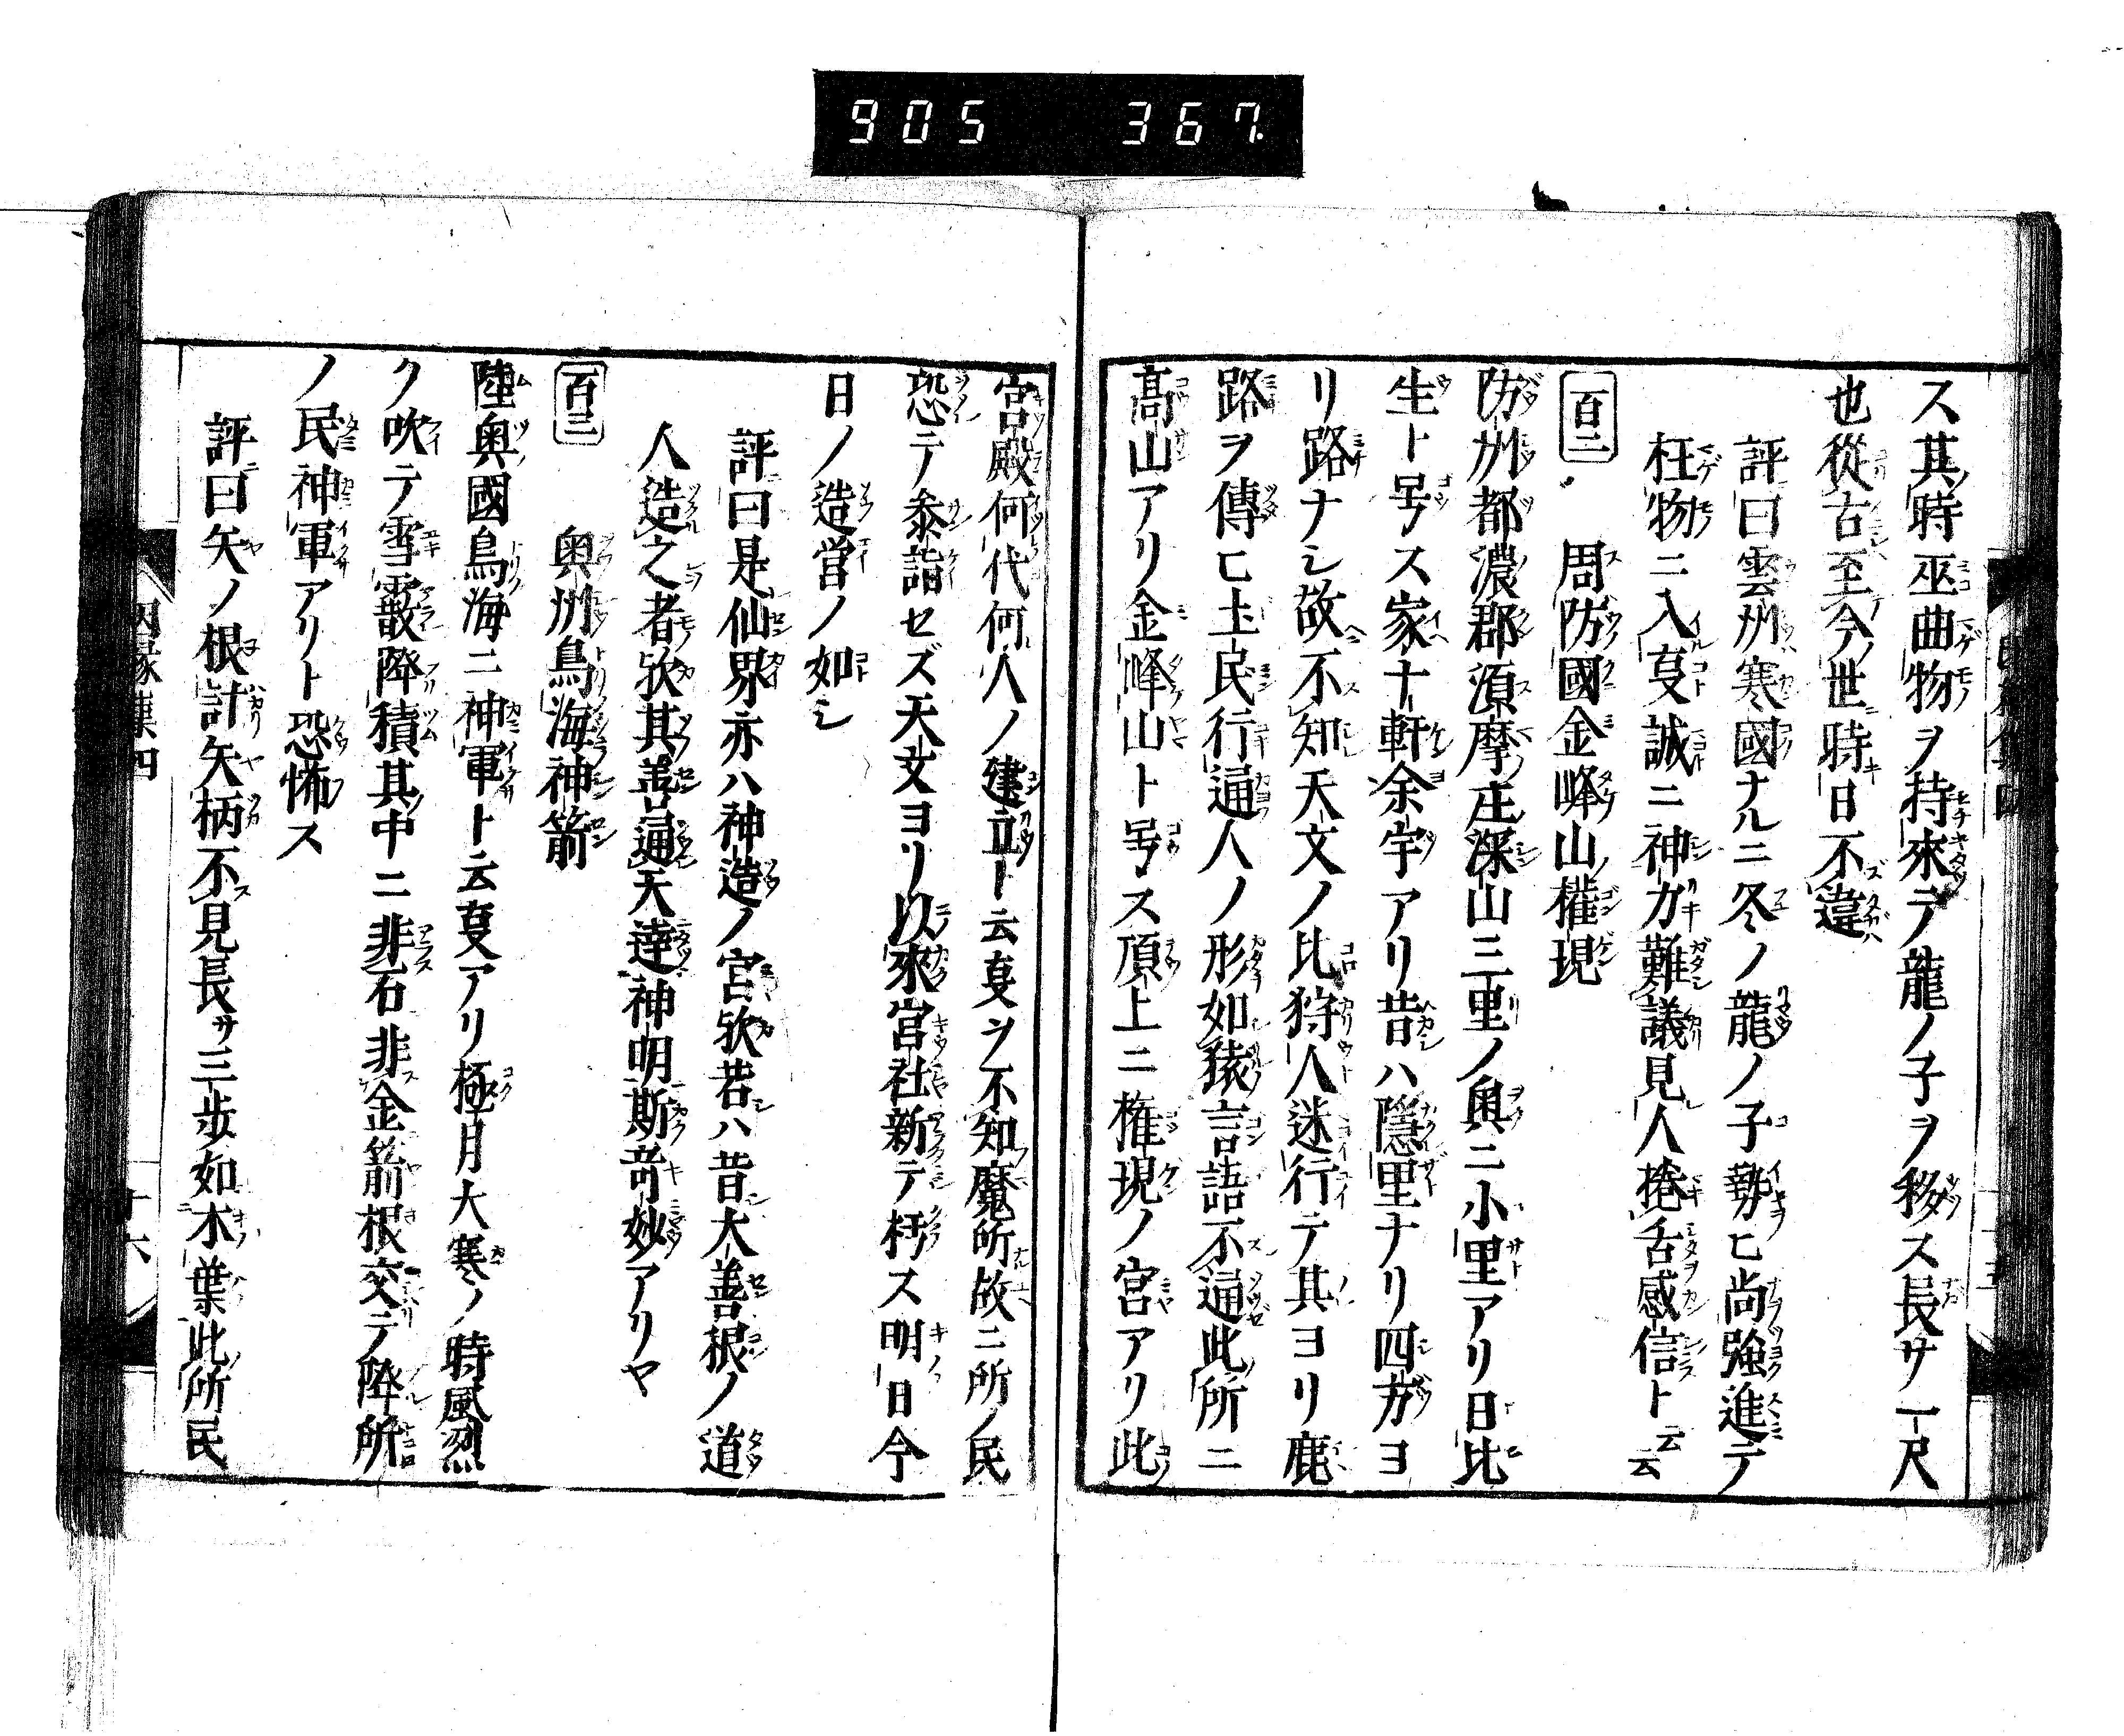 905 367
ス其時巫曲物ヲ持來テ龍ノ子ヲ移ス長サ一尺
也從古至今世時日不違
評曰雲州寒國ナルニ冬ノ龍ノ子勢ヒ尚強進テ
枉物ニ入㕝誠ニ神力難議見人捲舌感信ト云云
百二
周防國金峰山權現
防州都濃郡須摩庄深山三里ノ奥ニ小里アリ日比
生ト号ス家十軒余宇アリ昔ハ隱里ナリ四方ヨ
リ路ナシ故不知天文ノ比狩人迷行テ其ヨリ鹿
路ヲ傳ヒ土民行通人ノ形如猿言語不通此所ニ
髙山アリ金峰山ト号ス頂上ニ権現ノ宮アリ此
宮殿何代何人ノ建立ト云㕝ヲ不知魔所故ニ所ノ民
恐テ參詣セズ天文ヨリ以來宮社新テ朽ス明日今
日ノ造営ノ如シ
評曰是仙界亦ハ神造ノ宮欤若ハ昔大善根ノ道
人造之者欤其善通天達神明斯竒妙アリヤ
百三
奥州鳥海神箭
陸奥國鳥海ニ神軍ト云㕝アリ極月大寒ノ時風烈
ク吹テ雪霰散降積其中ニ非石非金箭根交テ降所
ノ民神軍アリト恐怖ス
評曰矢ノ根計矢柄不見長サ三歩如木葉此所民
因縁集四
十六